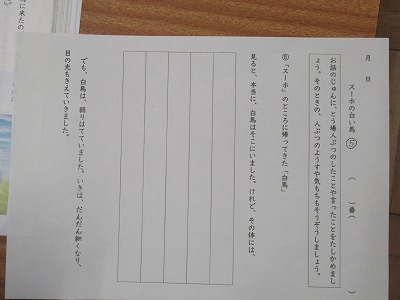 月　日
スーホの白い馬　⑤　（　　）番（　　　　　）
お話のじゅんに、とう場人ぶつのしたことや言ったことをたしかめまし
ょう。そのときの、人ぶつのようすや気もちもそうぞうしましょう。
⑤「スーホ」のところに帰ってきた「白馬」
見ると、本当に、白馬はそこにいました。けれど、その体には、
でも、白馬は、弱りはてていました。いきは、だんだん細くなり、
目の光もきえていきました。
に来たの